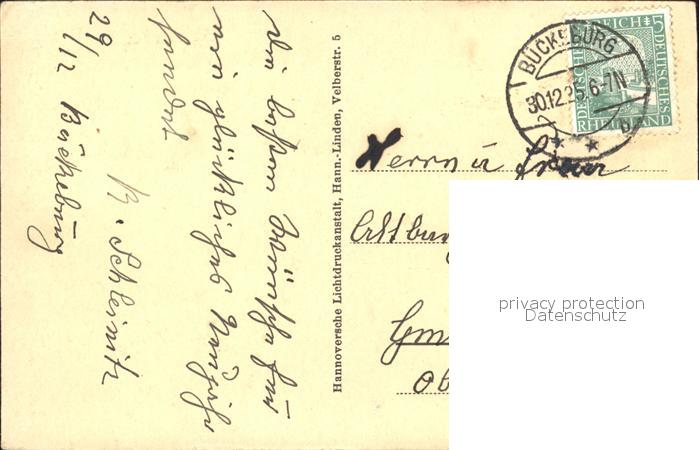 Die besten Wünsche für
ein glückliches Neujahr
sendet
K. Schleinitz
29/12 Bückeburg
Hannoversche Lichtdruckanstalt, Hann.-Linden, Velberstr. 5
DEUTSCHES REICH 5
DEUTSCHES
RHEINLAND
BÜCKEBURG
30.12.25.6-7N.
b
Herrn u
privacy protection
Datenschutz